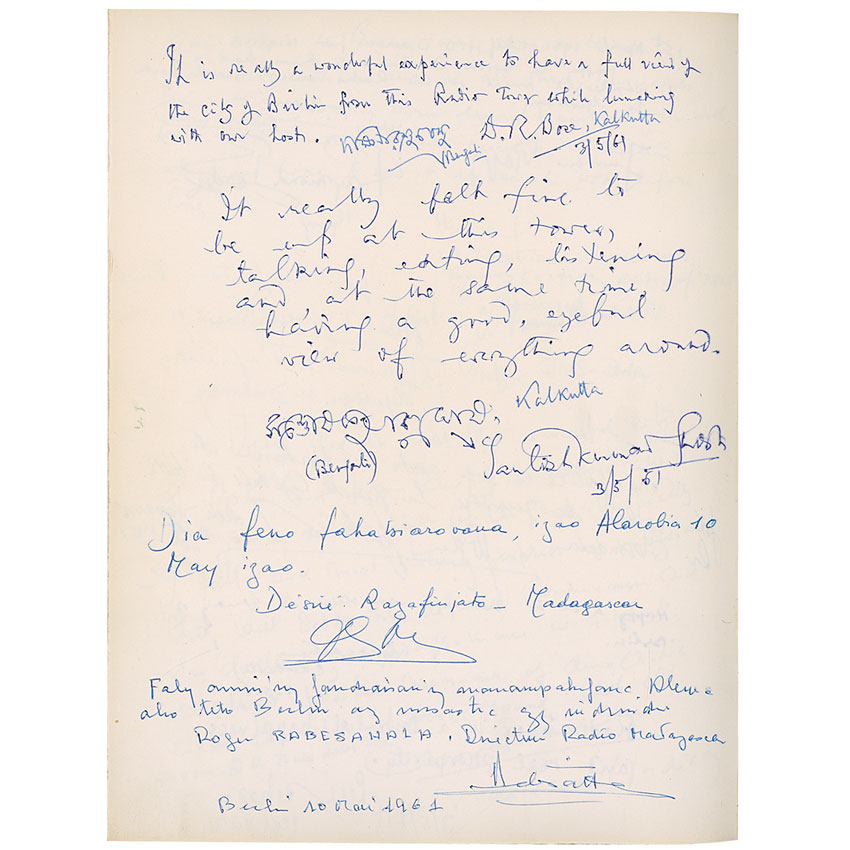 It is really a wonderful experience to have a full view of
the city of Berlin from this Radio Tower while lunching
with our hosts. D. R. Bose, Kalkutta
(Bengali) 3/5/61
It really felt fine to
be up at this tower,
talking, eating, listening
and at the same time,
having a good, eyeful
view of everything around.
Kalkutta
(Bengali) Santosh Kumar Ghosh
3/5/61
Dia feno fahatsiarovana, izao Alarobia 10
May izao.
Désiré Razafinjato - Madagascar
Faly amin'ny
aho teto Berlin ay
Roger RABESAHALA. Directeur Radio Madagascar
Berlin 10 Mai 1961